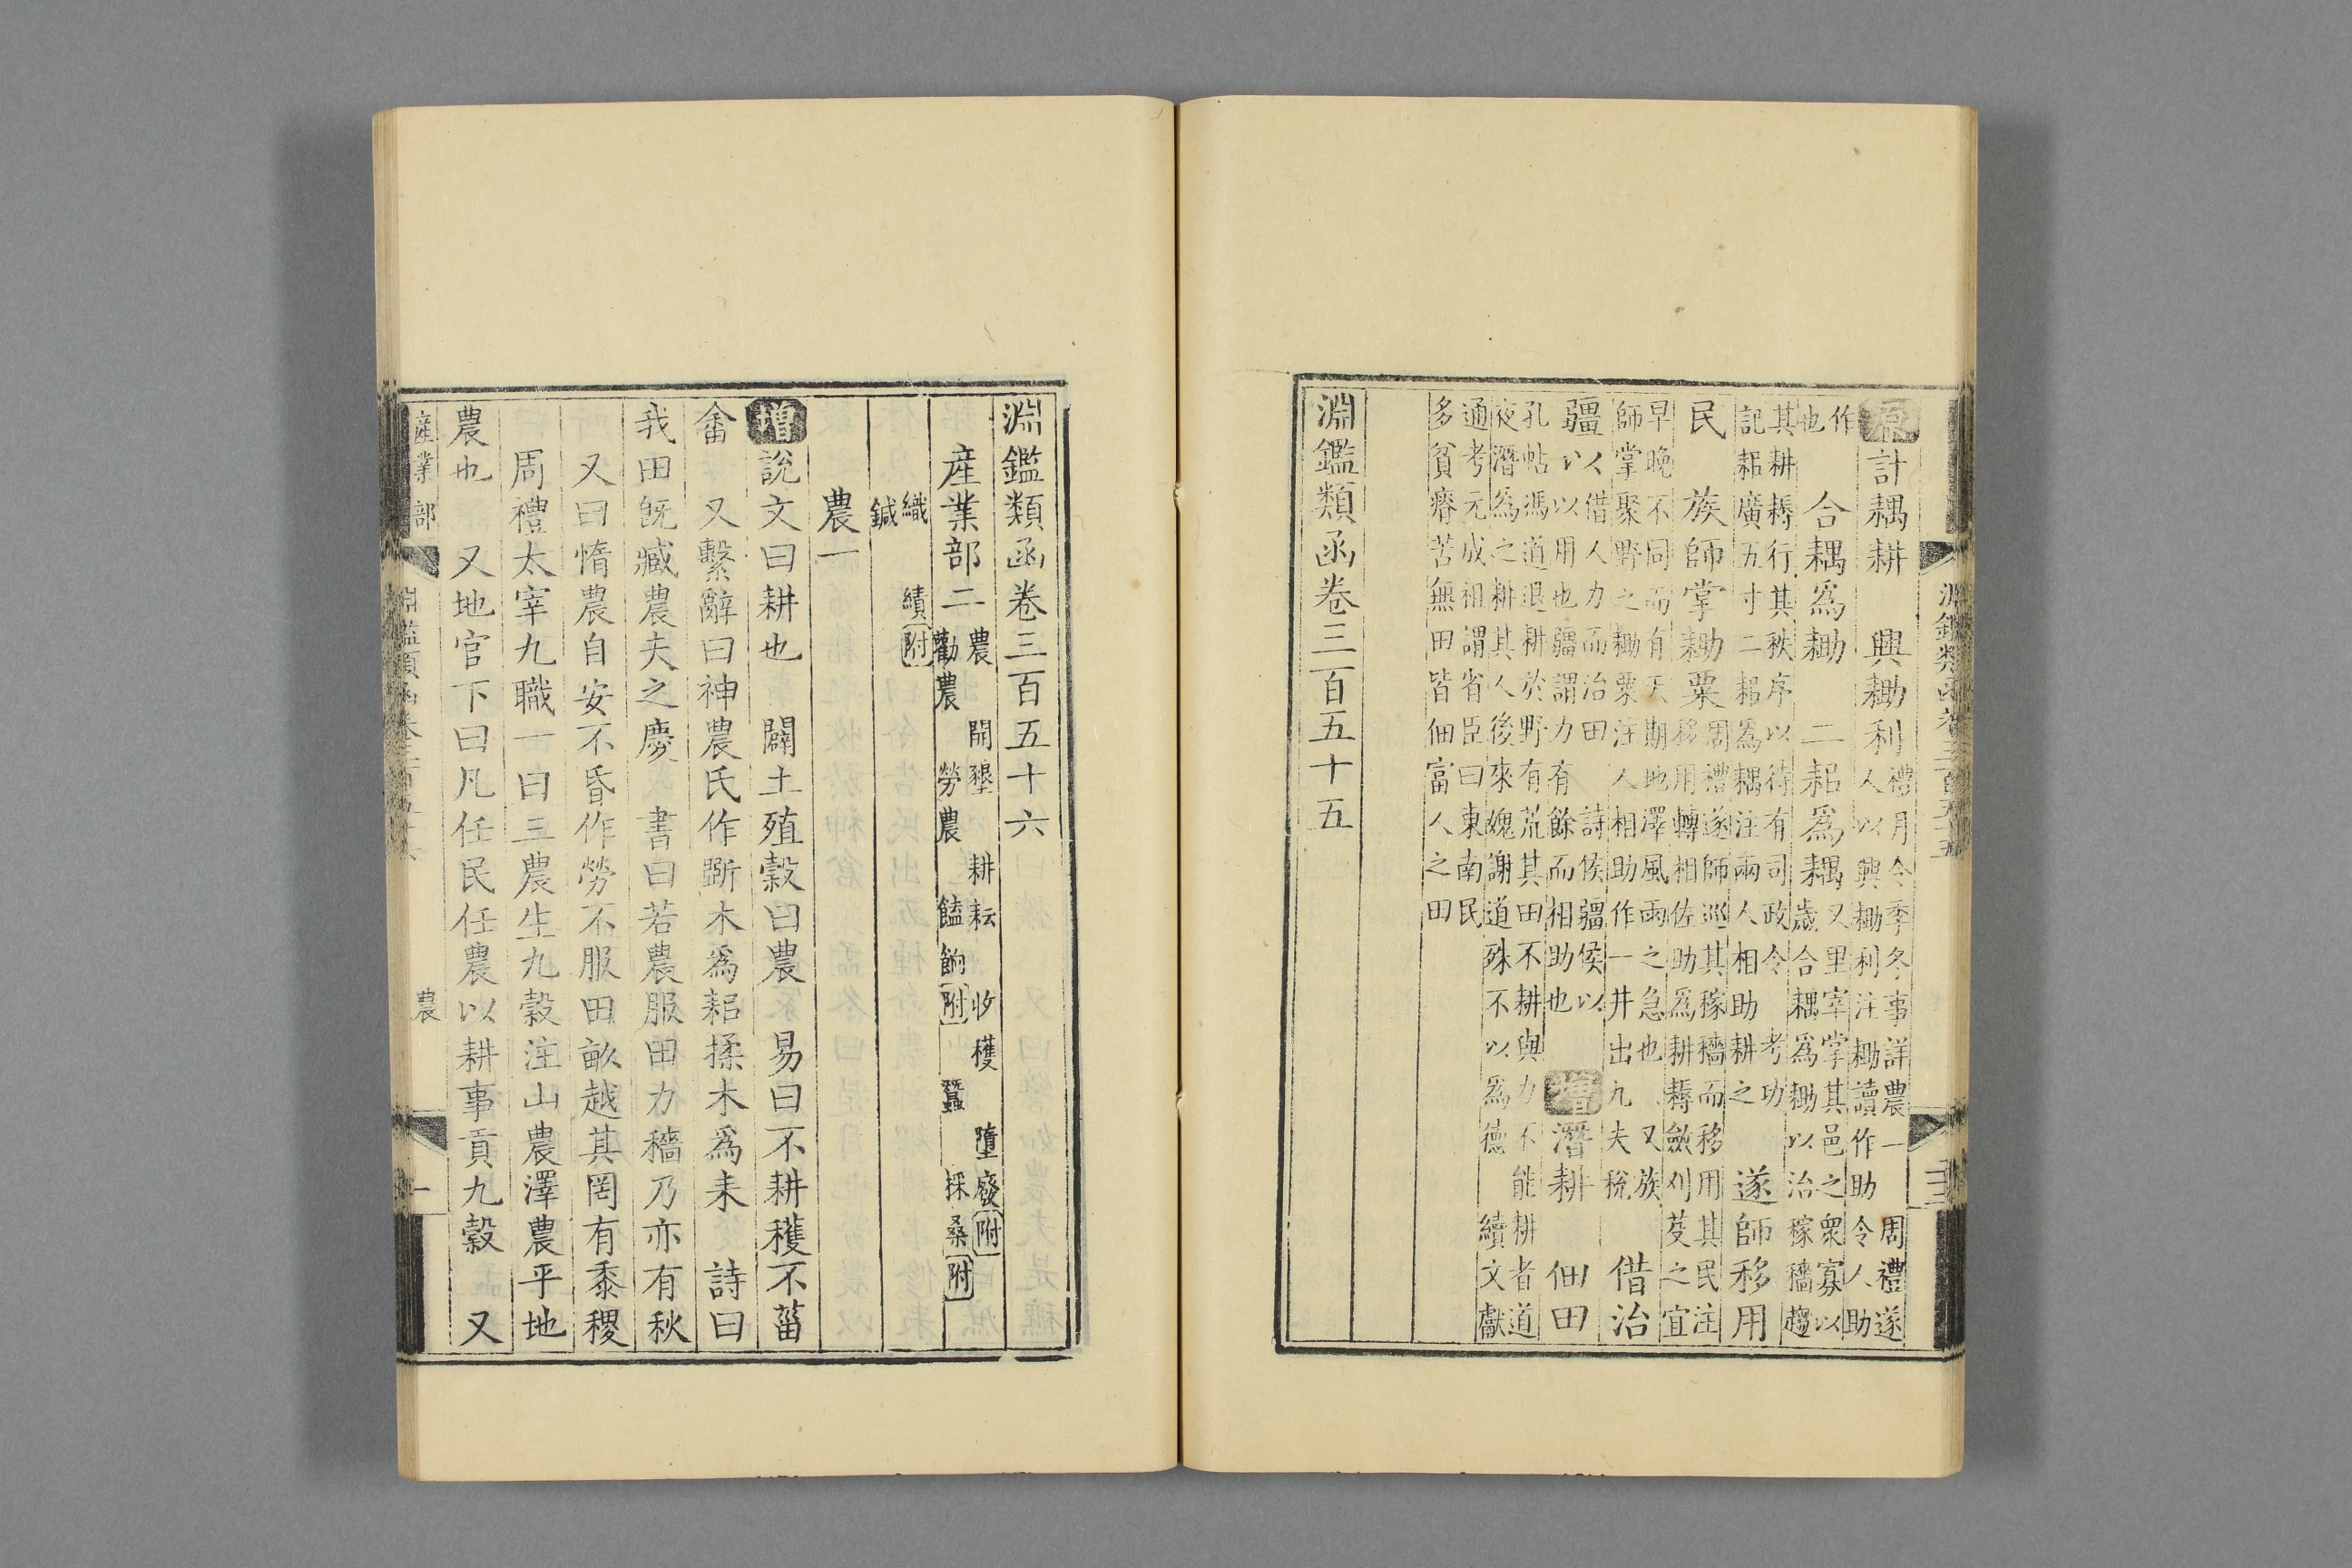 淵鑑類函卷三百五十五
原計耦耕　興耡利禮月令季冬事詳農一　周禮遂
人以興耡利注耡讀作助　令人助
作
也　合耦爲耡　二耜爲耦又里宰掌其邑之衆寡以
歲合耦爲耡以治稼穡趨
其耕耨行其秩序以待有司政令　考功
記耜廣五寸二耜爲耦注兩人相助耕之　遂師移用
民　族師掌耡粟周禮遂師巡其稼穡而移用其民注
移用轉相佐助爲耕耨斂刈芟之宜
早晚不同而有天期地澤風雨之急也　又族
師掌聚野之耡粟注人相助作一井出九夫稅　借治
疆以借人力而治田　詩侯疆侯以
以用也疆謂力有餘而相助也　增潛耕　佃田
孔帖馮道退耕於野有荒其田不耕與力不能耕者道
夜潛爲之耕其人後來媿謝道殊不以爲德　續文獻
通考元成祖謂省臣曰東南民
多貧瘠苦無田皆佃富人之田
淵鑑類函卷三百五十五
淵鑑類函卷三百五十六
產業部二農　開墾　耕耘　收穫　墮廢附
勸農　勞農　饁餉附　蠶　採桑附
織　績附
鍼
農一
增說文曰耕也　闢土殖穀曰農　易曰不耕穫不菑
畬　又繫辭曰神農氏作斲木爲耜揉木爲耒　詩曰
我田既臧農夫之慶　書曰若農服田力穡乃亦有秋
又曰惰農自安不昏作勞不服田畝越其罔有黍稷
周禮太宰九職一曰三農生九穀注山農澤農平地
農也　又地官下曰凡任民任農以耕事貢九穀　又
產業部　淵鑑類函卷三百五十六　農　一